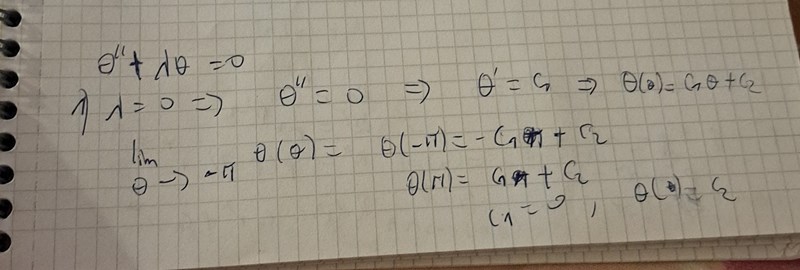 θ'' + λθ = 0
1) λ = 0 ⇒ θ'' = 0 ⇒ θ' = C₁ ⇒ θ(θ) = C₁θ + C₂
lim θ → -π θ(θ) = θ(-π) = -C₁π + C₂
θ(π) = C₁π + C₂
C₁ = 0, θ(θ) = C₂